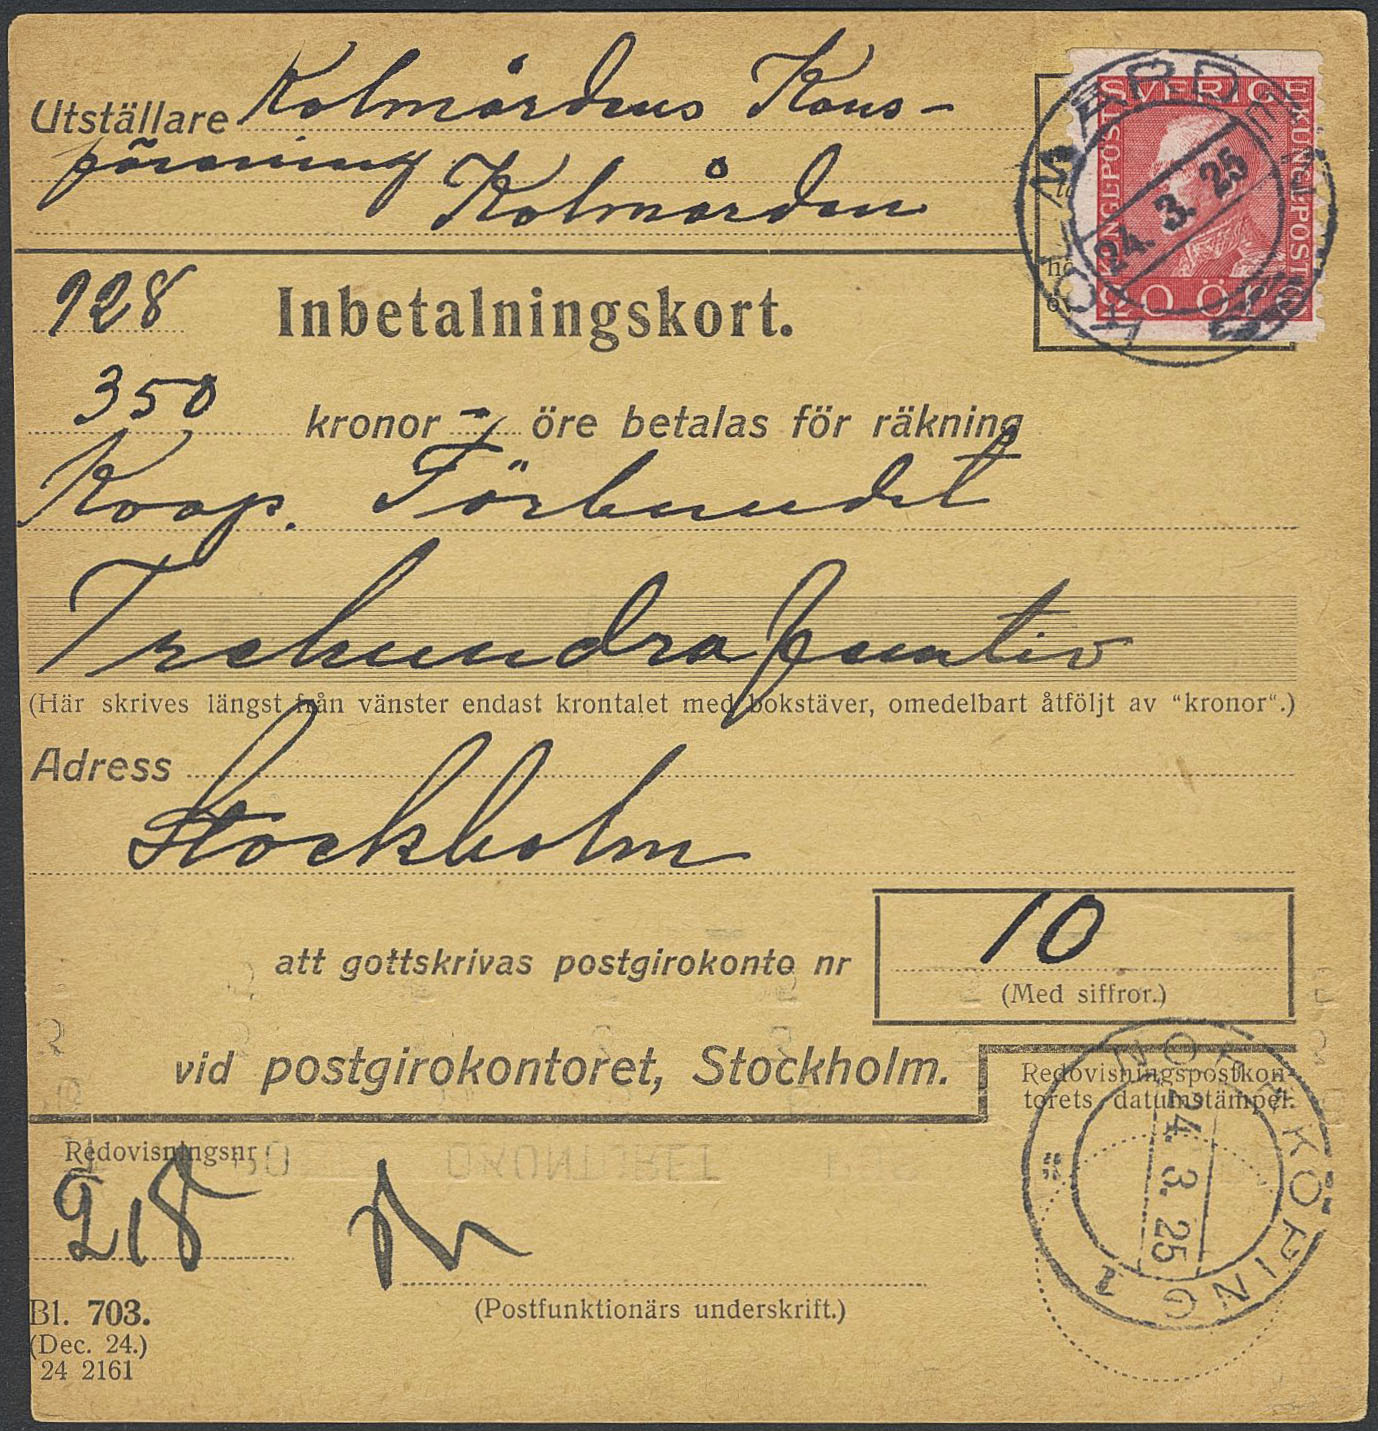 Utställare Kolmårdens Kons-
förening
Kolmården
SVERIGE
KUNGL.POST
KONGL.POST
20 ÖRE
KOLMÅRDEN
24. 3. 25
928
Inbetalningskort.
350 kronor - öre betalas för räkning
Koop. Förbundet
Trehundrafemtio
(Här skrives längst från vänster endast krontalet med bokstäver, omedelbart åtföljt av “kronor“.)
Adress
Stockholm
att gottskrivas postgirokonto nr 10
(Med siffror.)
vid postgirokontoret, Stockholm.
Redovisningspostkon-
torets datumstämpel.
NORRKÖPING 1
24. 3. 25
Redovisningsnr
218
(Postfunktionärs underskrift.)
Bl. 703.
(Dec. 24.)
24 2161